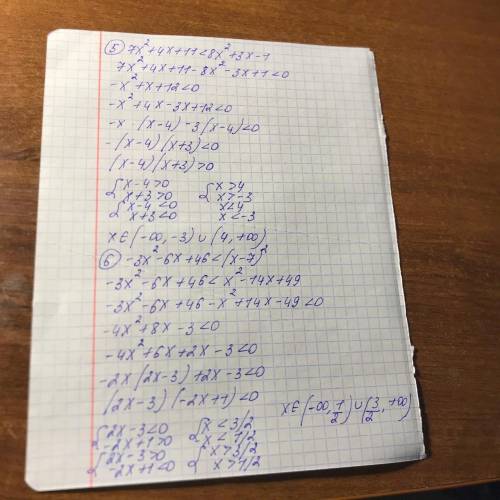 5) 7x²+4x+11<8x²+3x-1
7x²+4x+11-8x²-3x+1<0
-x²+x+12<0
-x²+4x-3x+12<0
-x·(x-4)-3(x-4)<0
-(x-4)(x+3)<0
(x-4)(x+3)>0
{x-4>0 {x>4
x+3>0 x>-3
{x-4<0 {x<4
x+3<0 x<-3
x∈(-∞,-3)∪(4,+∞)
6) -3x²-6x+46<(x-7)²
-3x²-6x+46<x²-14x+49
-3x²-6x+46-x²+14x-49<0
-4x²+8x-3<0
-4x²+6x+2x-3<0
-2x(2x-3)+2x-3<0
(2x-3)(-2x+1)<0
{2x-3<0 {x<3/2
-2x+1>0 x<1/2
{2x-3>0 {x>3/2
-2x+1<0 x>1/2
x∈(-∞,1/2)∪(3/2,+∞)